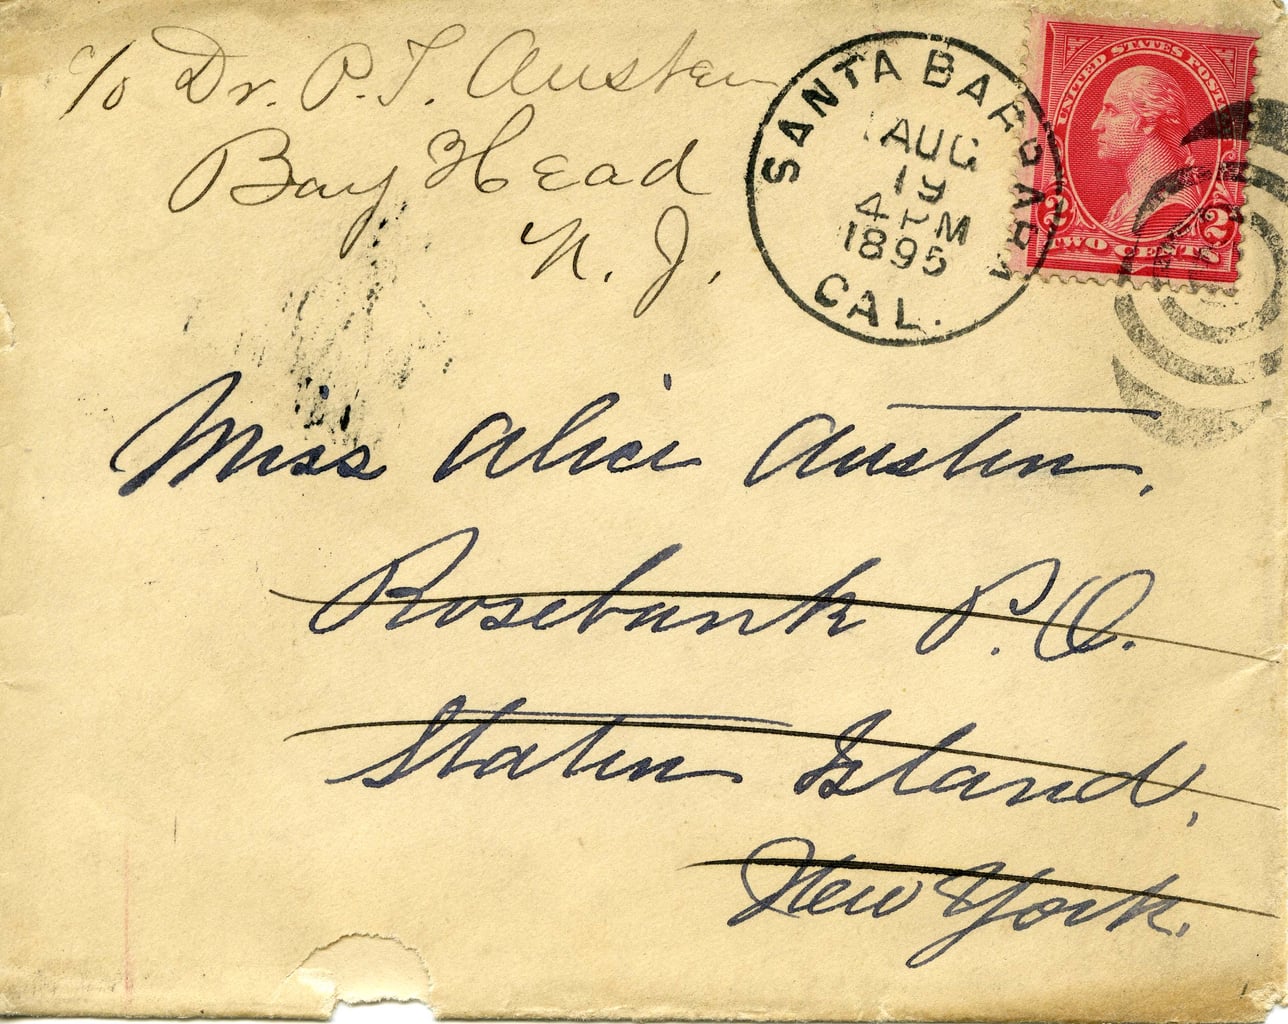 c/o Dr. P. T. Austen
Bay Head
N. J.
SANTA BARBARA
AUG
19
4 PM
1895
CAL.
UNITED STATES POSTAGE
2 2
TWO CENTS
Miss Alice Austin,
Rosebank P. O.
Staten Island,
New York.